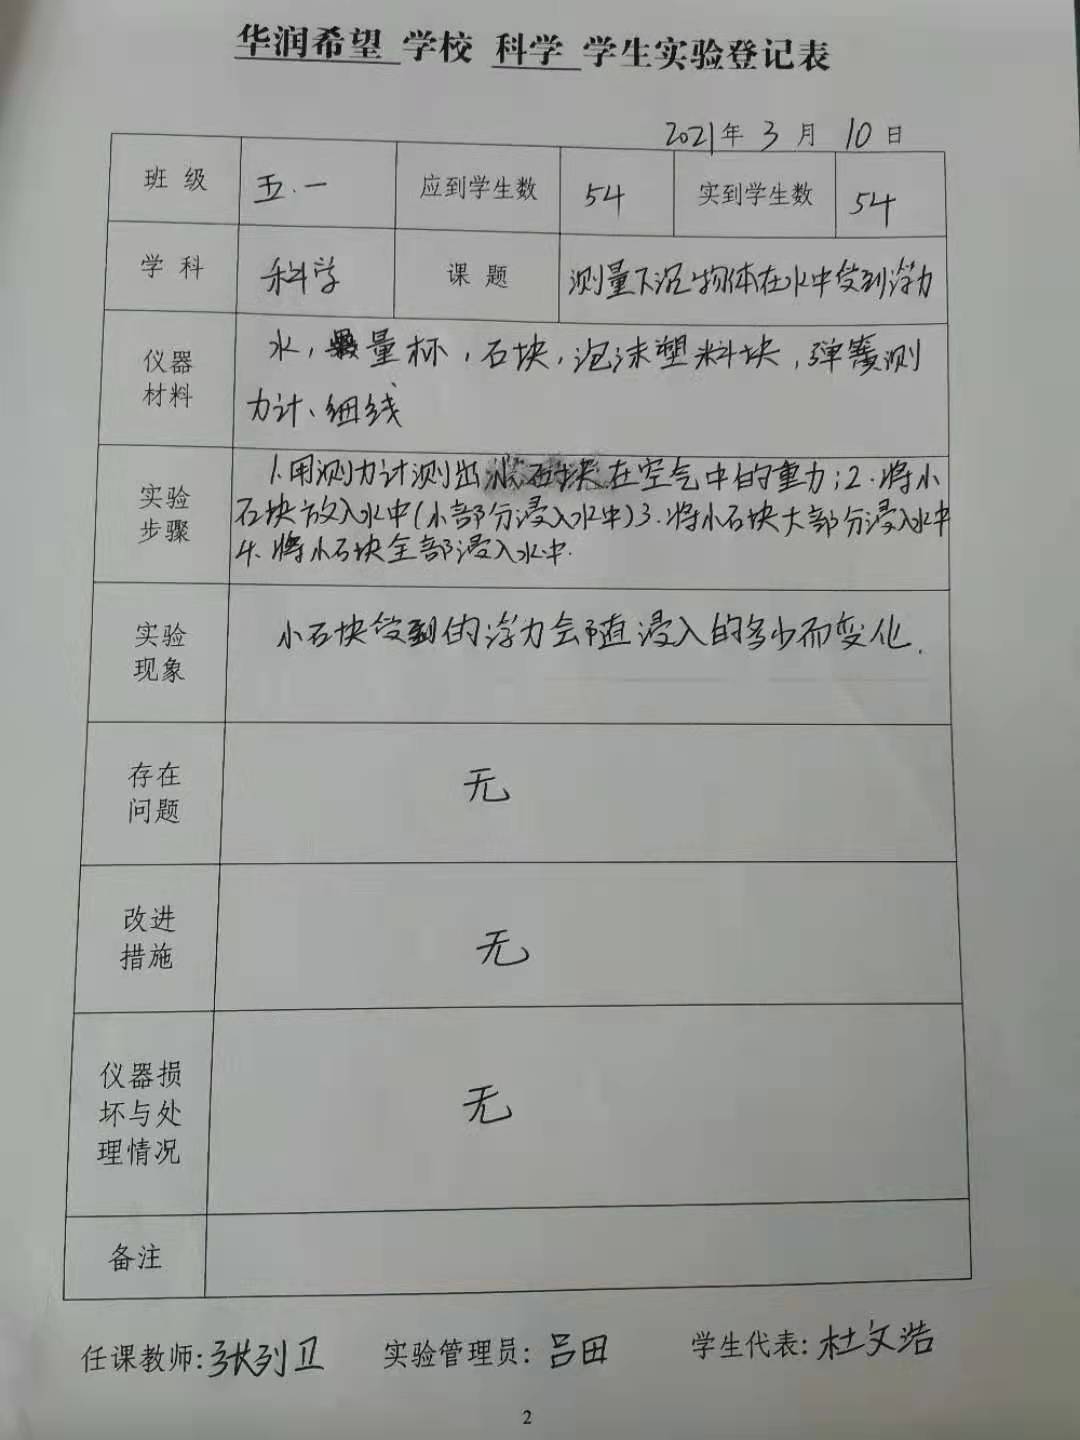 华润希望 学校 科学 学生实验登记表
2021年 3 月 10 日
班 级 五.一 应到学生数 54 实到学生数 54
学 科 科学 课 题 测量下沉物体在水中受到浮力
仪器
材料
水，量杯，石块，泡沫塑料块，弹簧测
力计、细线
实验
步骤
1.用测力计测出石块在空气中的重力；2.将小
石块放入水中(小部分浸入水中)3.将小石块大部分浸入水中
4.将小石块全部浸入水中.
实验
现象
小石块受到的浮力会随浸入的多少而变化.
存在
问题
无
改进
措施
无
仪器损
坏与处
理情况
无
备注
任课教师:张列卫 实验管理员:吕田 学生代表:杜文浩
2